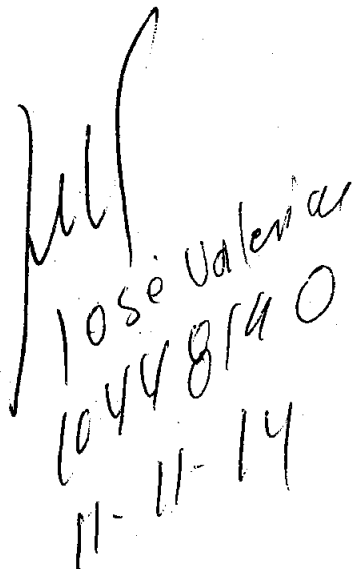 José Valencia
10448140
11-11-14